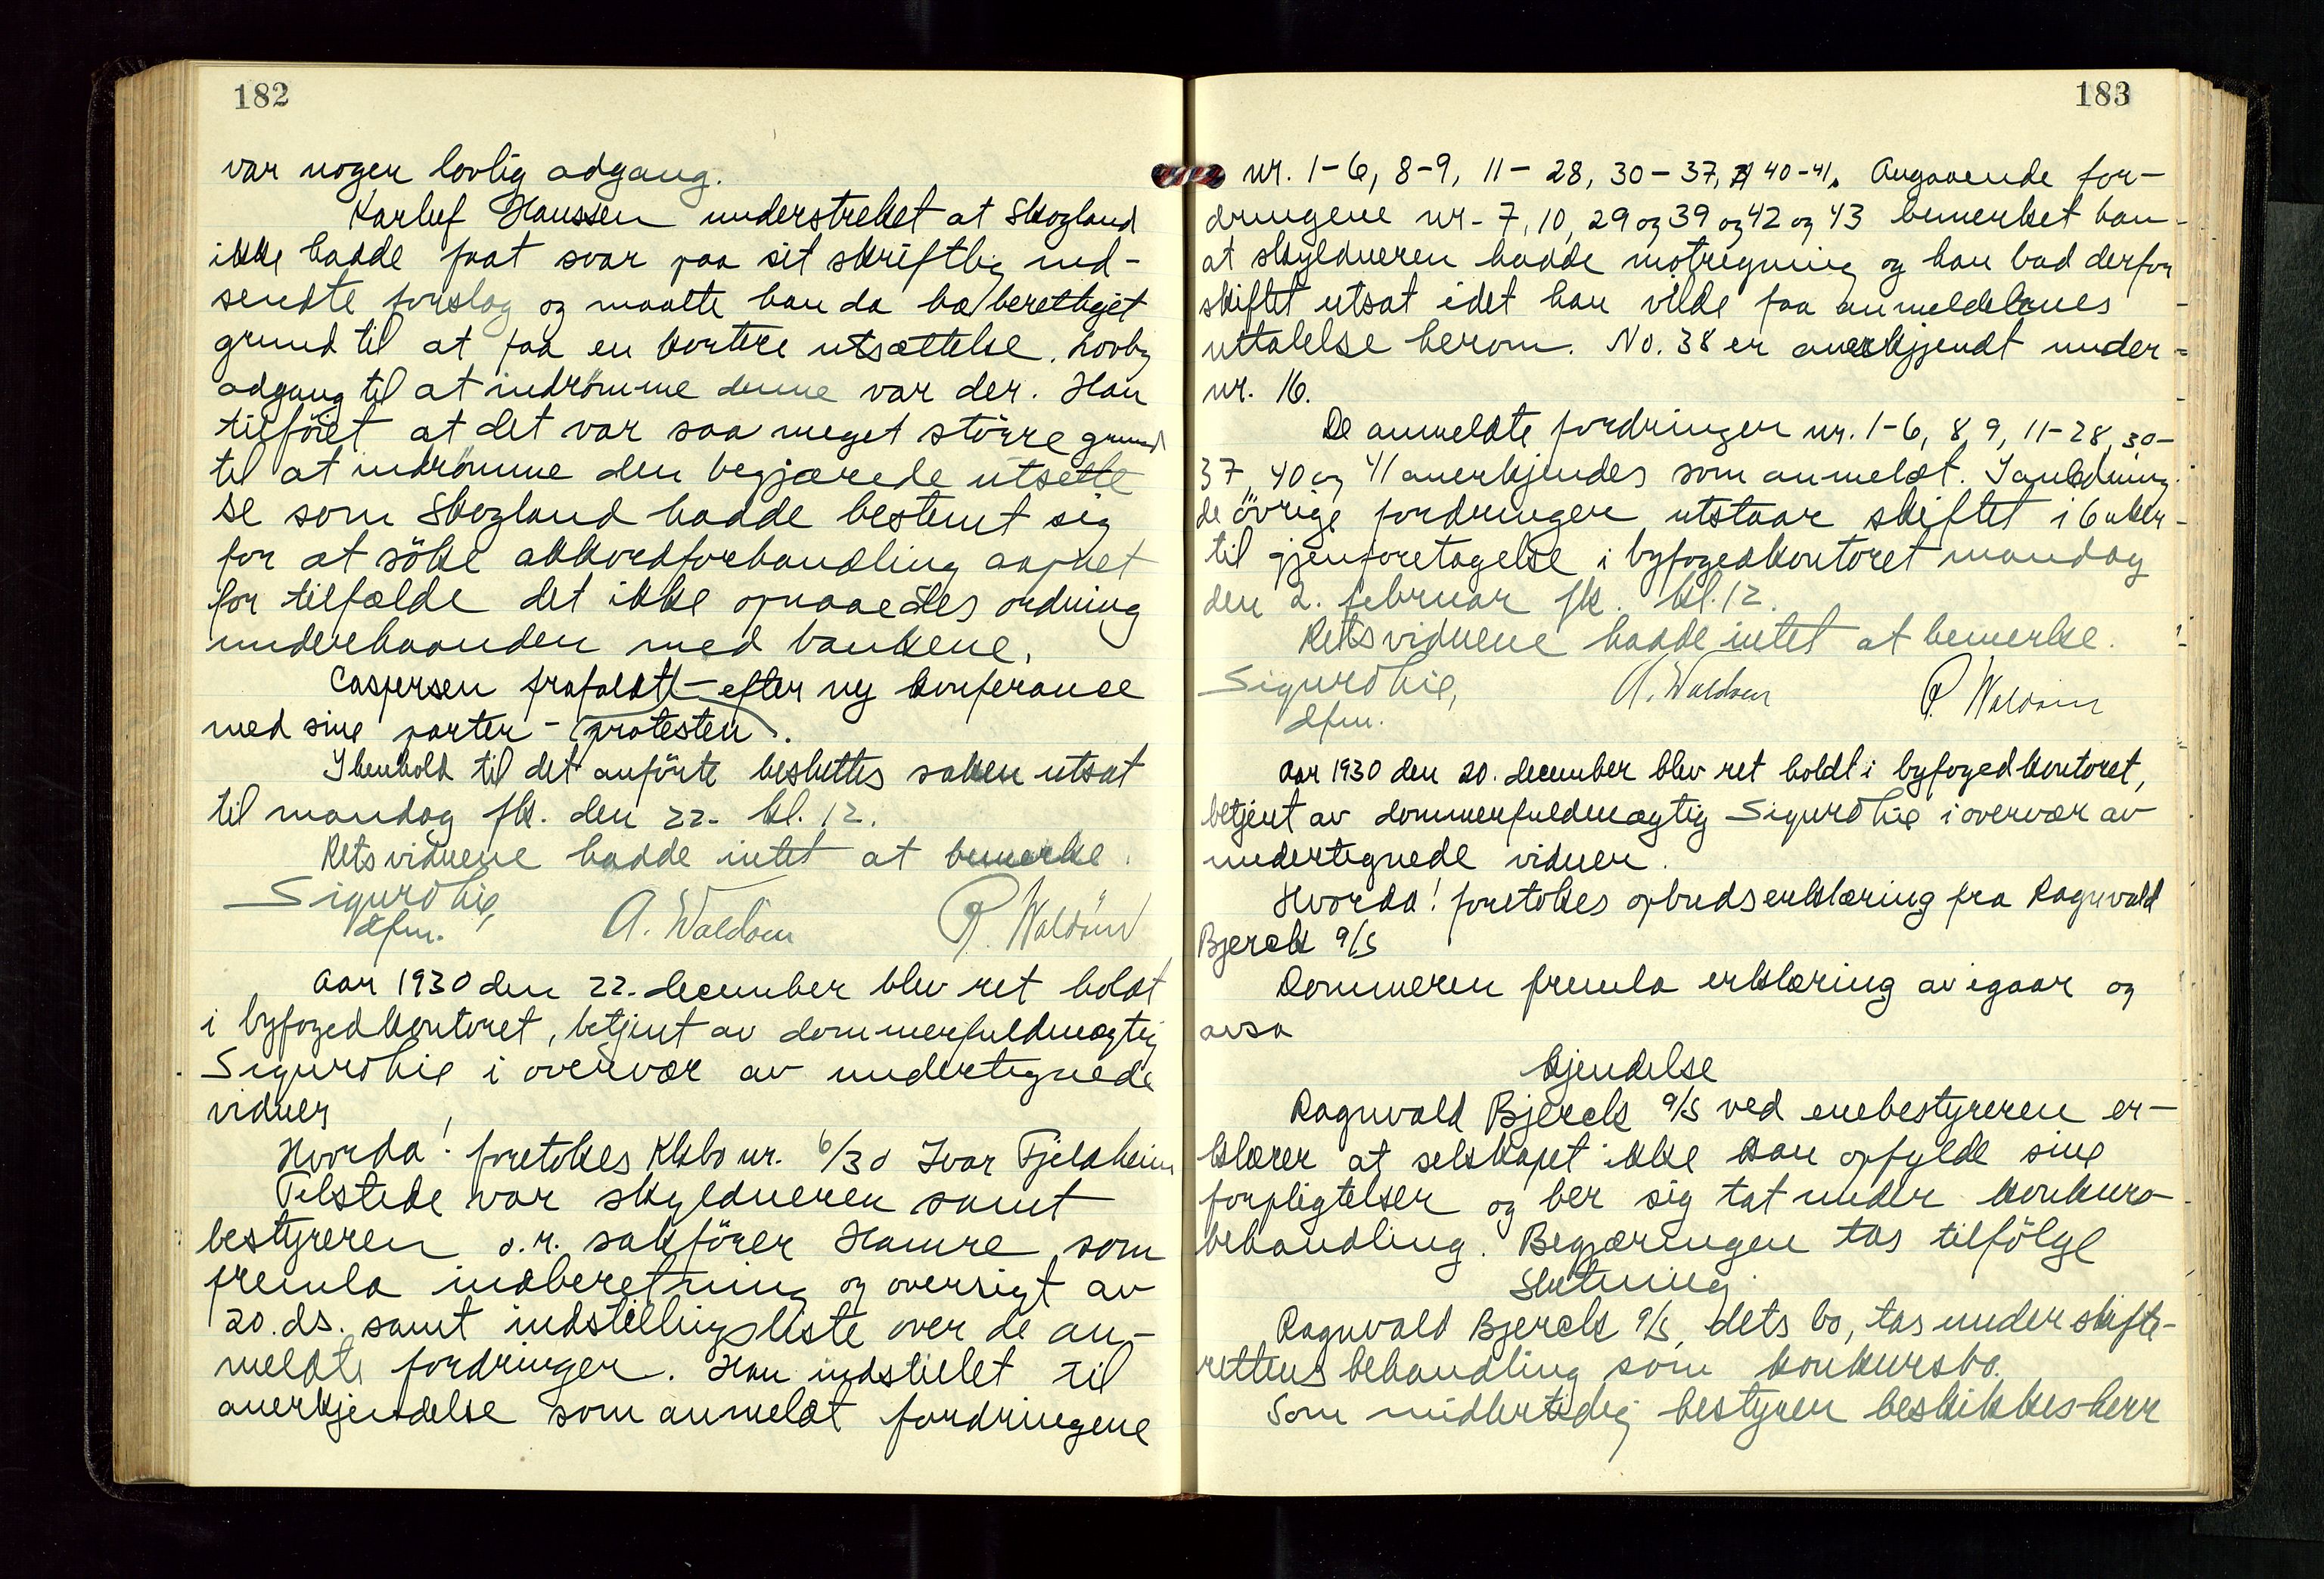 182
var nogen lovlig adgang.
Karluf Hanssen understreket at Skogland
ikke hadde faat svar paa sit skriftlig ind-
sendte forslag og maatte han da ha berettiget
grund til at faa en kortere utsættelse. Lovlig
adgang til at indrömme denne var der. Han
tilföiet at det var saa meget större grund
til at indrömme den begjærede utsettel
se som Skogland hadde bestemt sig
for at söke akkordforhandling aapnet
for tilfælde det ikke opnaaedes ordning
underhaanden med bankene.
Caspersen frafaldt - efter ny konferance
med sine parter - protesten.
I henhold til det anförte besluttes saken utsat
til mandag fk. den 22. kl. 12.
Retsvidnene hadde intet at bemerke.
Sigurd Lie,
dfm.
A. Waldom
R. Waldom
Aar 1930 den 22. december blev ret holdt
i byfogedkontoret, betjent av dommerfuldmægtig
Sigurd Lie i overvær av undertegnede
vidner
Hvorda! foretokes Kkbo nr. 6/30 Ivar Fjeldheim
Tilstede var skyldneren samt
bestyreren o.r. sakförer Hamre, som
fremla indberetning og oversigt av
20. ds. samt indstillingsliste over de an-
meldte fordringer. Han indstillet til
anerkjendelse som anmeldt fordringene
183
nr. 1-6, 8-9, 11-28, 30-37, 40-41. Angaaende for-
dringene nr. 7, 10, 29 og 39 og 42 og 43 bemerket han
at skyldneren hadde motregning og han bad derfor
skiftet utsat idet han vilde faa anmeldelsenes
uttalelse herom. No. 38 er anerkjendt under
nr. 16.
De anmeldte fordringer nr. 1-6, 8, 9, 11-28, 30-
37, 40 og 41 anerkjendes som anmeldt. I anledning
de övrige fordringer utstaar skiftet i 6 uker
til gjenforetagelse i byfogedkontoret mandag
den 2. februar fk. kl. 12.
Retsvidnene hadde intet at bemerke.
Sigurd Lie,
dfm.
A. Waldom
R. Waldom
Aar 1930 den 20. december blev ret holdt i byfogedkontoret,
betjent av dommerfuldmægtig Sigurd Lie i overvær av
undertegnede vidner.
Hvorda! foretokes opbudserklæring fra Ragnvald
Bjerck A/S
Dommeren fremla erklæring av igaar og
avsa
kjendelse
Ragnvald Bjerck A/S ved enebestyreren er-
klærer at selskapet ikke kan opfylde sine
forpligtelser og ber sig tat under konkurs-
behandling. Begjæringen tas tilfölge
Slutning
Ragnvald Bjerck A/S, dets bo, tas under skifte-
rettens behandling som konkursbo.
Som midlertidig bestyrer beskikkes herr